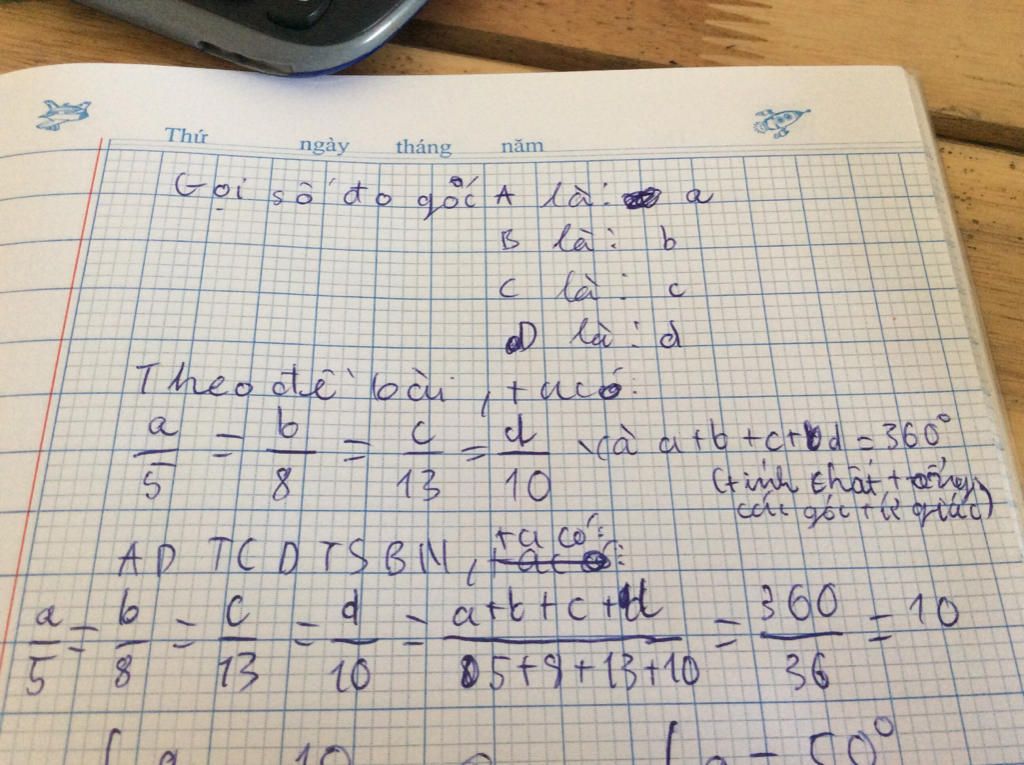 Thứ ngày tháng năm
Gọi số đo góc A là: a
B là: b
C là: c
D là: d
Theo đề bài, ta có:
a/5 = b/8 = c/13 = d/10 và a+b+c+d = 360°
(tính chất tổng
các góc tứ giác)
AD TCDTSBN, ta có:
a/5 = b/8 = c/13 = d/10 = a+b+c+d/5+8+13+10 = 360/36 = 10